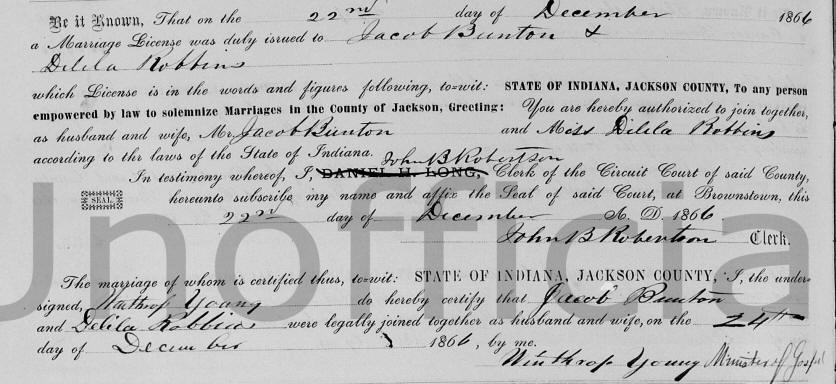 Be it Known, That on the 22nd day of December 1866
a Marriage License was duly issued to Jacob Bunton &
Delila Robbins
which License is in the words and figures following, to=wit: STATE OF INDIANA, JACKSON COUNTY, To any person
empowered by law to solemnize Marriages in the County of Jackson, Greeting: You are hereby authorized to join together,
as husband and wife, Mr. Jacob Bunton and Miss Delila Robbins
according to thr laws of the State of Indiana. John B Robertson
In testimony whereof, I, DANIEL H. LONG, Clerk of the Circuit Court of said County,
SEAL. hereunto subscribe my name and affix the Seal of said Court, at Brownstown, this
22nd day of December A. D. 1866
John B Robertson Clerk.
The marriage of whom is certified thus, to=wit: STATE OF INDIANA, JACKSON COUNTY, I, the under-
signed, Winthrop Young do hereby certify that Jacob Bunton
and Delila Robbins were legally joined together as husband and wife, on the 24th
day of December 1866, by me.
Winthrop Young Minister of Gospel
Unofficia